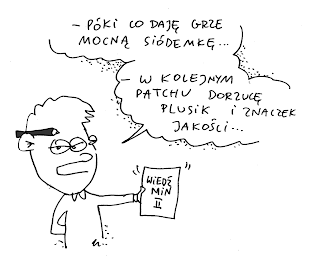 - PÓKI CO DAJĘ GRZE
MOCNĄ SIÓDEMKĘ...
- W KOLEJNYM
PATCHU DORZUCĘ
PLUSIK I ZNACZEK
JAKOŚCI...
WIEDŹ
MIN
II